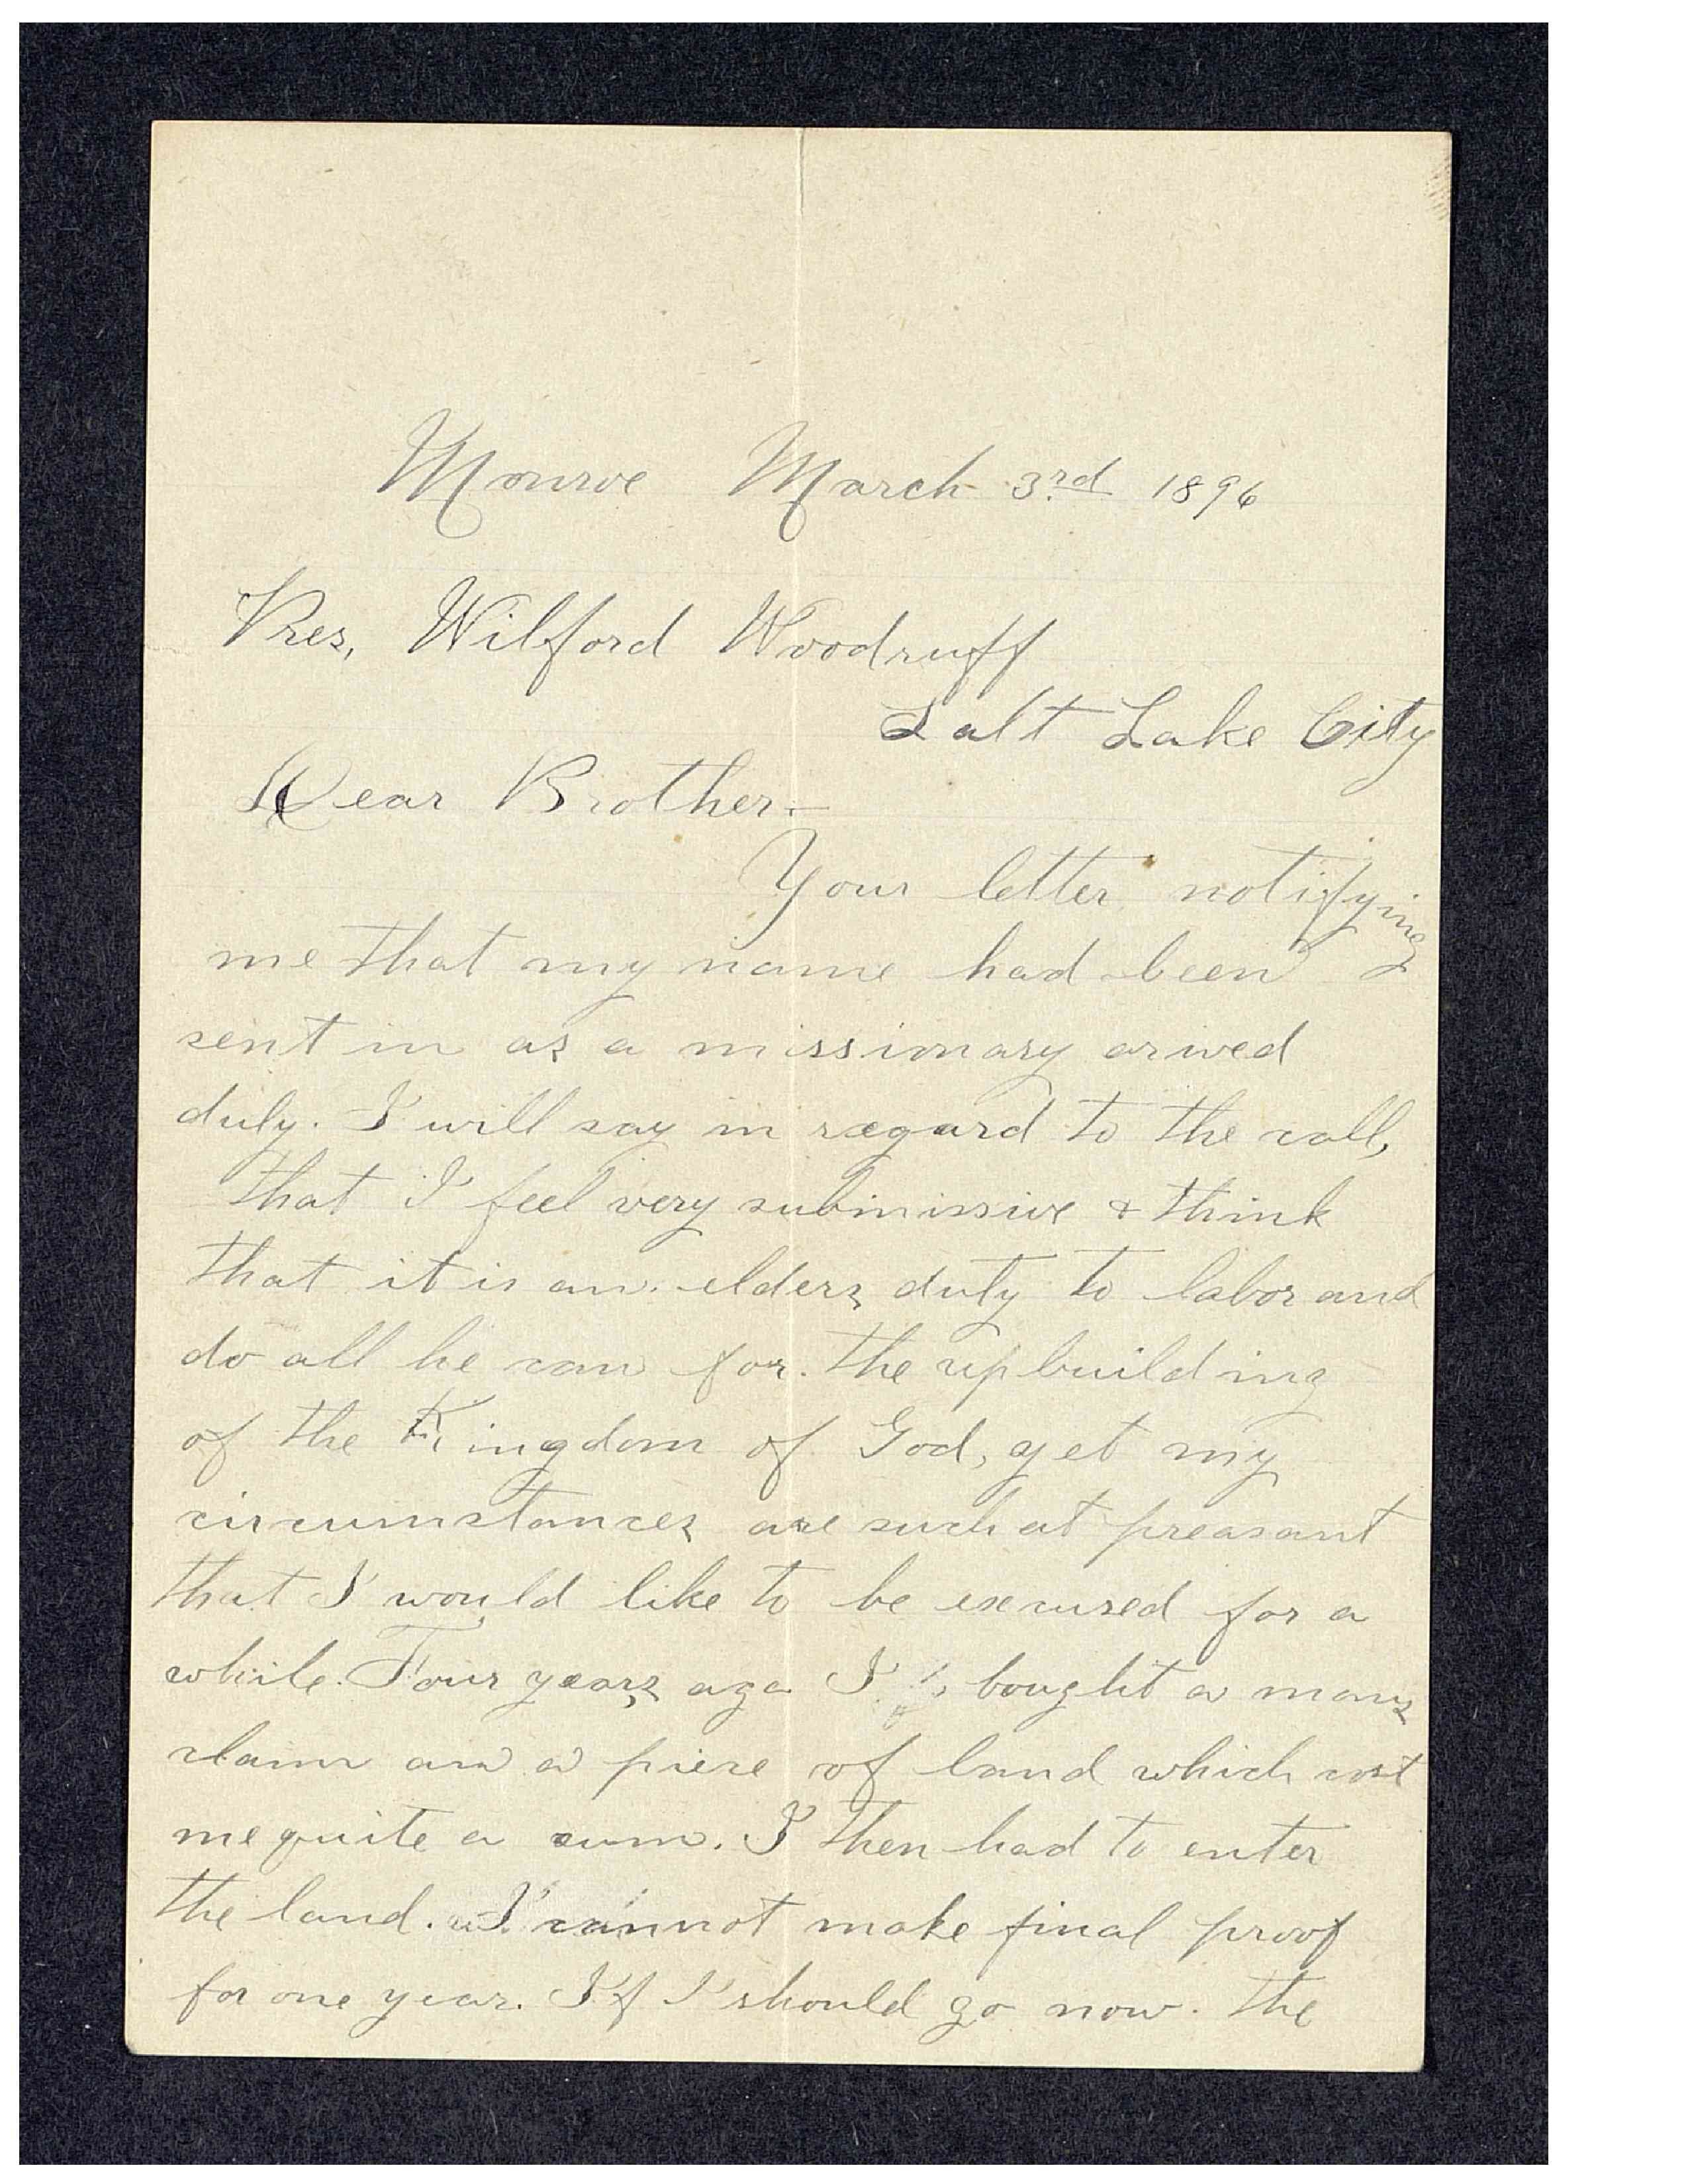 Monroe March 3rd 1896
Pres, Wilford Woodruff
Salt Lake City
Dear Brother.-
Your letter notifying
me that my name had been
sent in as a missionary arived
duly. I will say in regard to the call,
that I feel very submissive & think
that it is an elders duty to labor and
do all he can for. the upbuilding
of the Kingdom of God, yet my
circumstances are such at preasant
that I would like to be excused for a
while. Four years ago I bought a mans
clame on a piece of land which cost
me quite a sum. I then had to enter
the land. I cannot make final proof
for one year. If I should go now. the